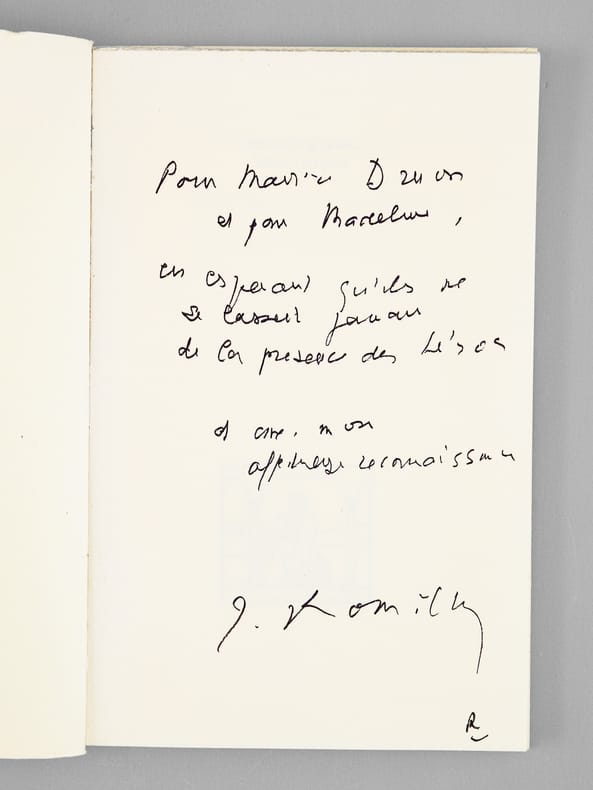 Pour Maurice Druon
et pour Madeleine,
en espérant qu'ils ne
se lassent jamais
de la présence des héros
et avec mon
affectueuse reconnaissance
J. Romilly
R